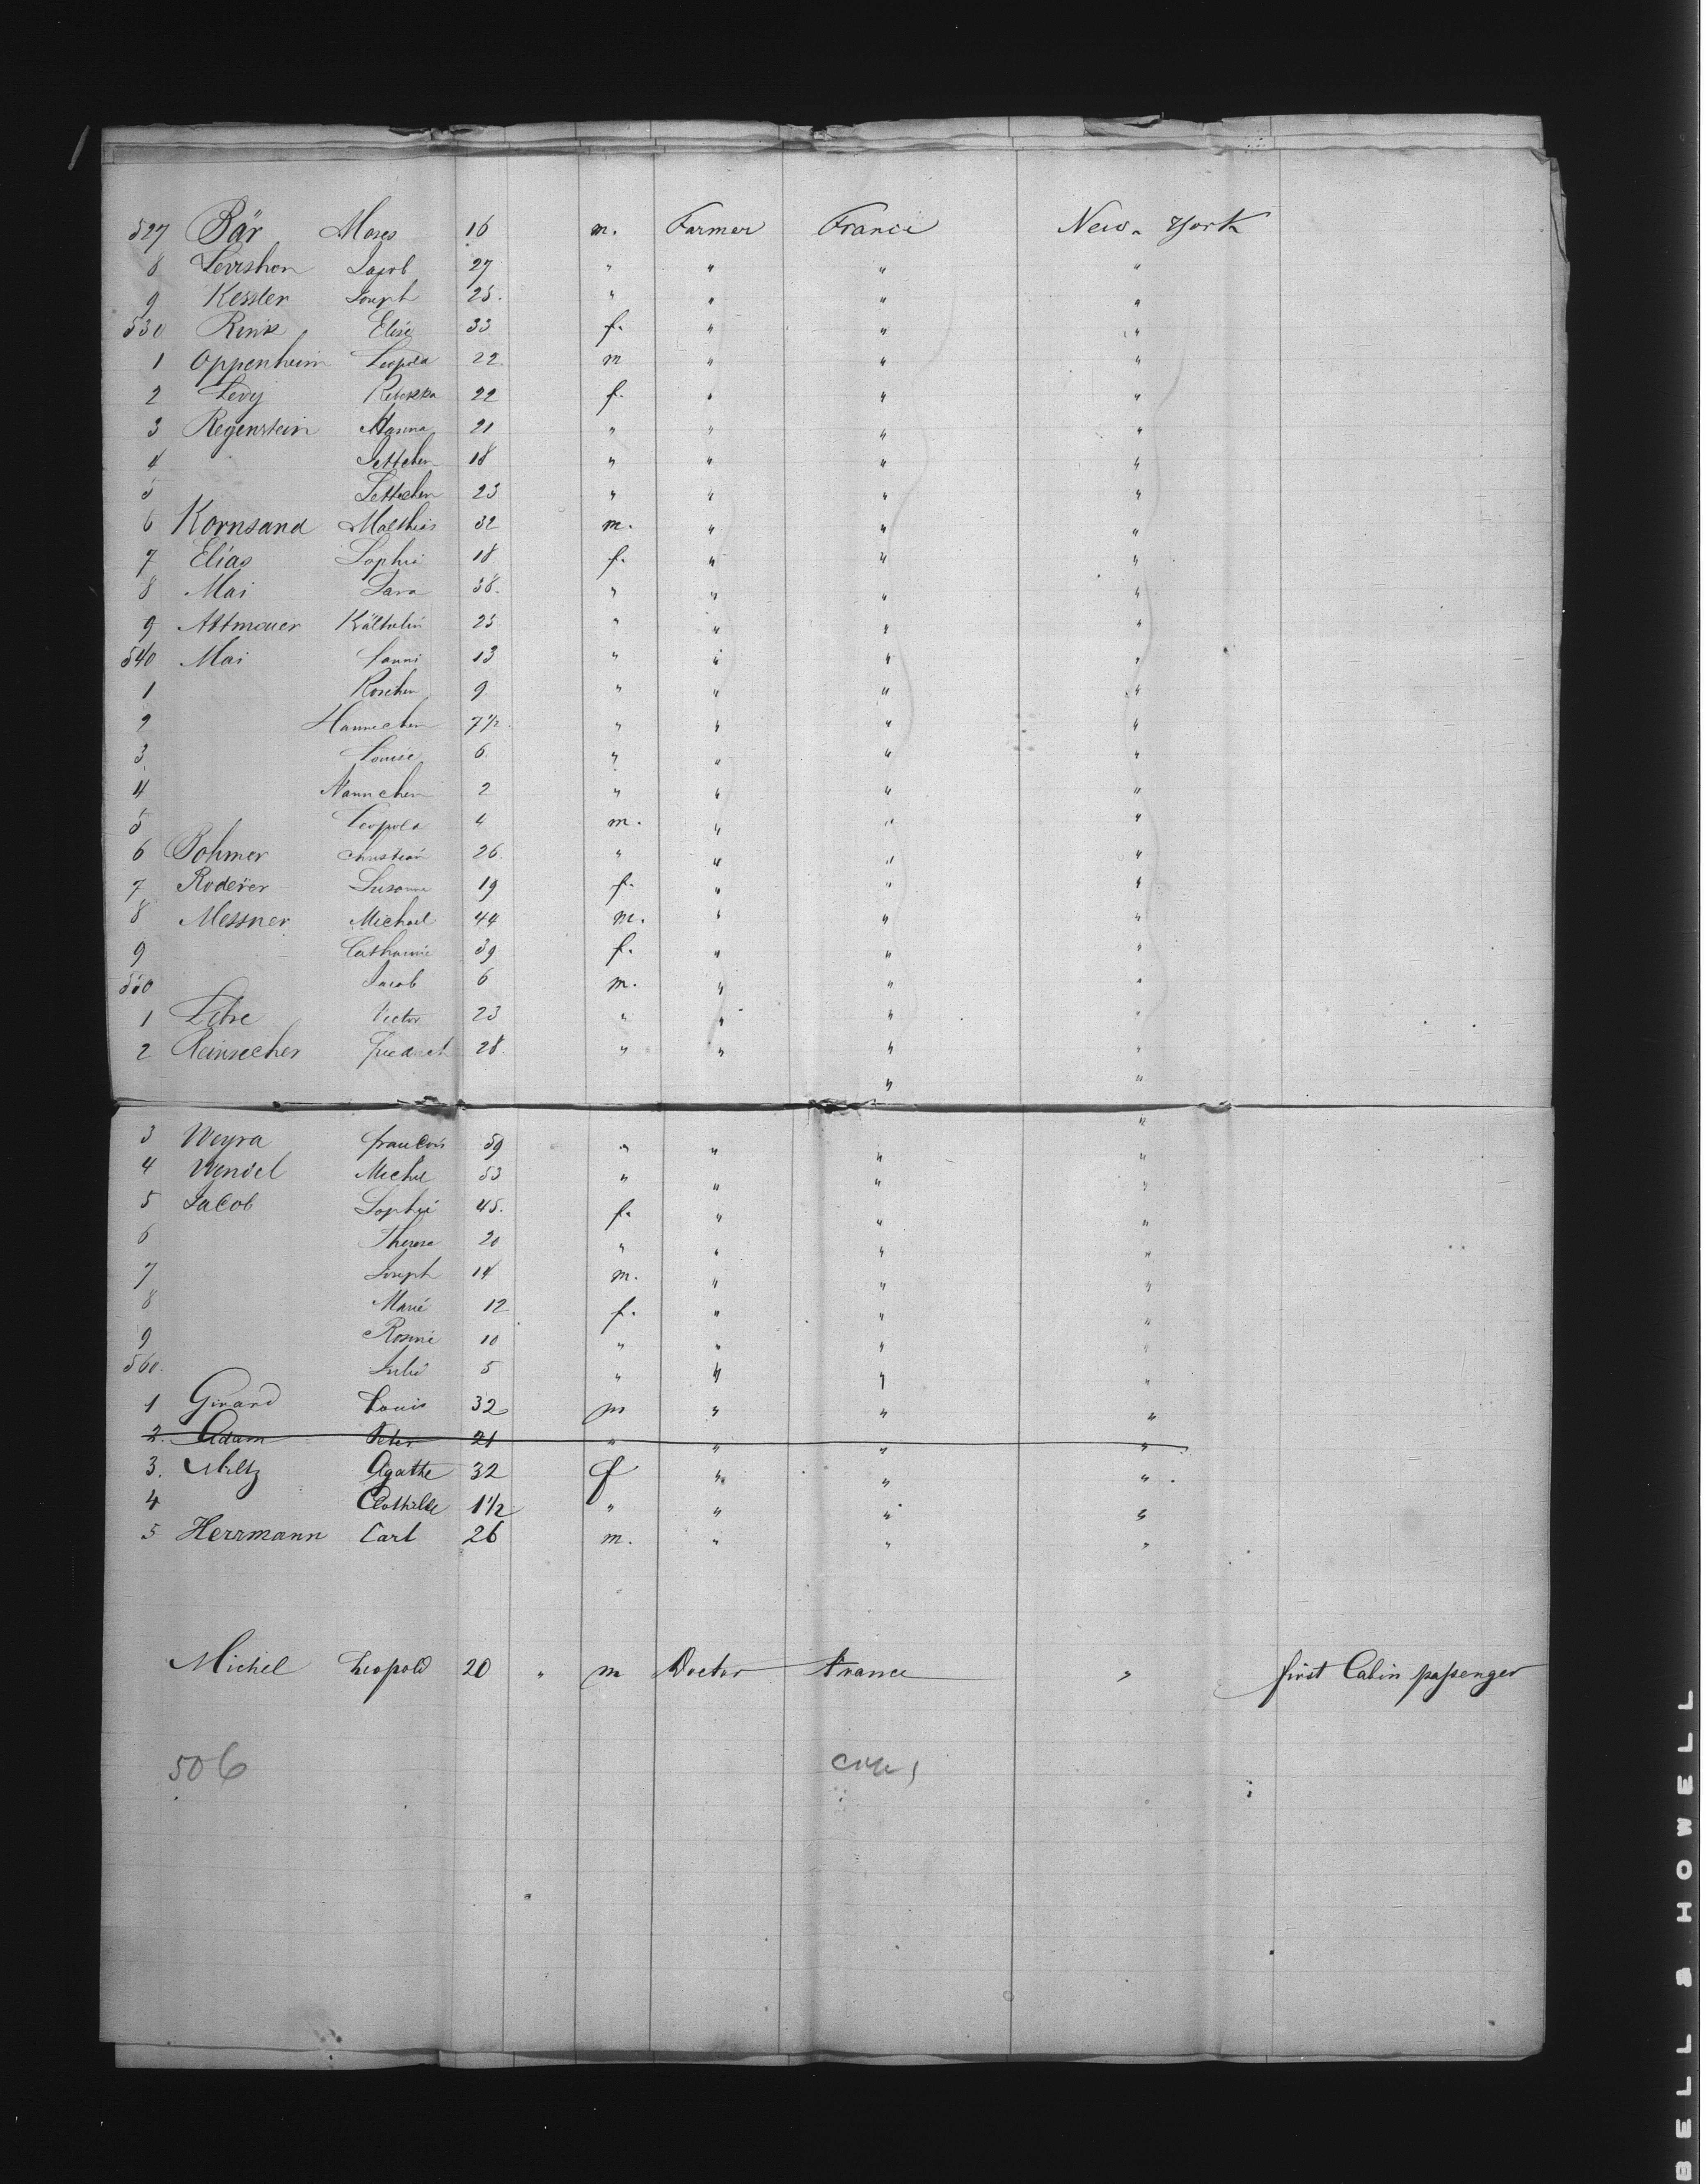 527 Bär Moses 16 m. Farmer France New-York
8 Levishon Jacob 27 " " " "
9 Kessler Joseph 25. " " " "
530 Rink Elise 33 f. " " "
1 Oppenheim Leopold 22. m " " "
2 Levy Rebekka 22 f. " " "
3 Regenstein Hanna 21 " " " "
4 Jettchen 18 " " " "
5 Settchen 23 " " " "
6 Kornsand Matthias 32 m. " " "
7 Elias Sophie 18 f. " " "
8 Mai Sara 38. " " " "
9 Attmauer 23 " " " "
540 Mai Fanni 13 " " " "
1 Roschen 9 " " " "
2 Hannchen 7 1/2. " " " "
3 Louise 6. " " " "
4 Nannchen 2 " " " "
5 Leopold 4 m. " " "
6 Bohmer Christian 26. " " " "
7 Roderer Susanna 19 f. " " "
8 Messner Michael 44 m. " " "
9 Catharine 39 f. " " "
550 Jacob 6 m. " " "
1 Victor 23 " " " "
2 Reinsecher Friedrich 28. " " " "
" "
"
3 Weyra Francois 59 " " " "
4 Wendel Michel 53 " " " "
5 Jacob Sophie 45. f. " " "
6 Theresa 20 " " " "
7 Joseph 14 m. " " "
8 Marie 12 f. " " "
9 Rosine 10 " " " "
560. Julie 5 " " " "
1 Girard Louis 32 m " " "
2. Adam Peter 21 " " " "
3. Miltz Agathe 32 f " " " .
4 Clothilde 1 1/2 " " " "
5 Herrmann Carl 26 m. " " "
Michel Leopold 20 " m Doctor France " first Cabin passenger
506
BELL & HOWELL